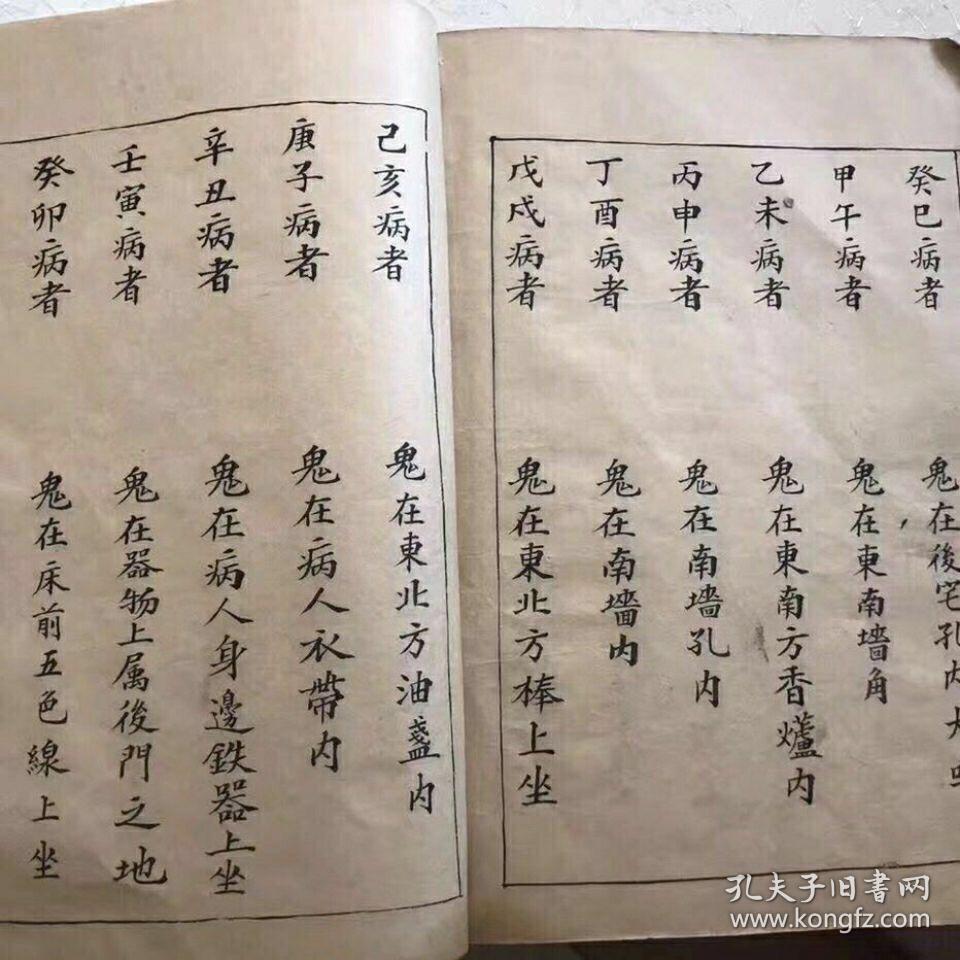 癸巳病者 鬼在後宅孔内
甲午病者 鬼在東南墻角
乙未病者 鬼在東南方香爐内
丙申病者 鬼在南墻孔内
丁酉病者 鬼在南墻内
戊戌病者 鬼在東北方棒上坐
己亥病者 鬼在東北方油盞内
庚子病者 鬼在病人衣帶内
辛丑病者 鬼在病人身邊鉄器上坐
壬寅病者 鬼在器物上属後門之地
癸卯病者 鬼在床前五色線上坐
孔夫子旧書网
www.kongfz.com